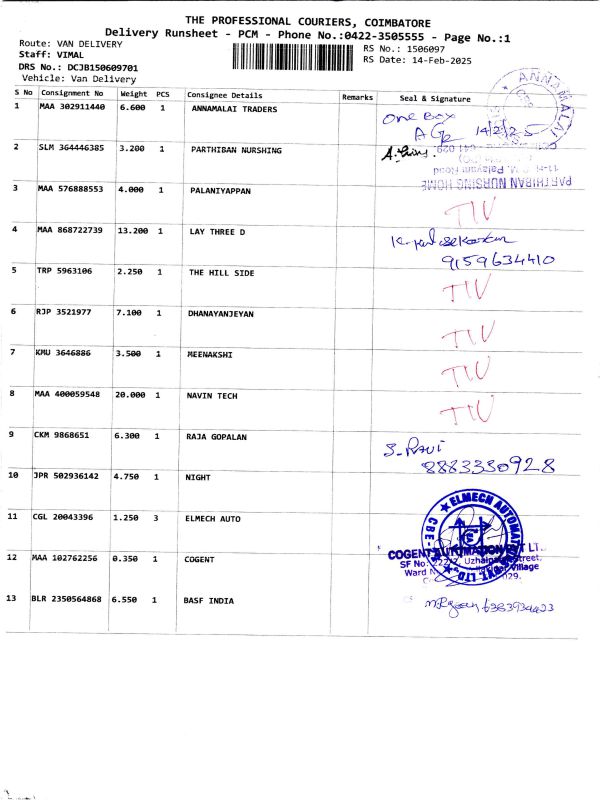 THE PROFESSIONAL COURIERS, COIMBATORE
Delivery Runsheet - PCM - Phone No.:0422-3505555 - Page No.:1
Route: VAN DELIVERY
RS No.: 1506097
Staff: VIMAL
RS Date: 14-Feb-2025
DRS No.: DCJB150609701
Vehicle: Van Delivery
S No Consignment No Weight PCS Consignee Details Remarks Seal & Signature
1 MAA 302911440 6.600 1 ANNAMALAI TRADERS
ANNAMALAI
One Box
14/2/25
2 SLM 364446385 3.200 1 PARTHIBAN NURSHING
641 029
Palayam Road
PARTHIBAN NURSING HOME
3 MAA 576888553 4.000 1 PALANIYAPPAN
TIV
4 MAA 868722739 13.200 1 LAY THREE D
9159634410
5 TRP 5963106 2.250 1 THE HILL SIDE
TIV
6 RJP 3521977 7.100 1 DHANAYANJEYAN
TIV
7 KMU 3646886 3.500 1 MEENAKSHI
TIV
8 MAA 400059548 20.000 1 NAVIN TECH
TIV
9 CKM 9868651 6.300 1 RAJA GOPALAN
S. Ravi
8883330928
10 JPR 502936142 4.750 1 NIGHT
11 CGL 20043396 1.250 3 ELMECH AUTO
ELMECH AUTOMATION
CBE
12 MAA 102762256 0.350 1 COGENT
COGENT AUTOMATION PVT LT
SF No.
Street,
Ward
Village
029.
13 BLR 2350564868 6.550 1 BASF INDIA